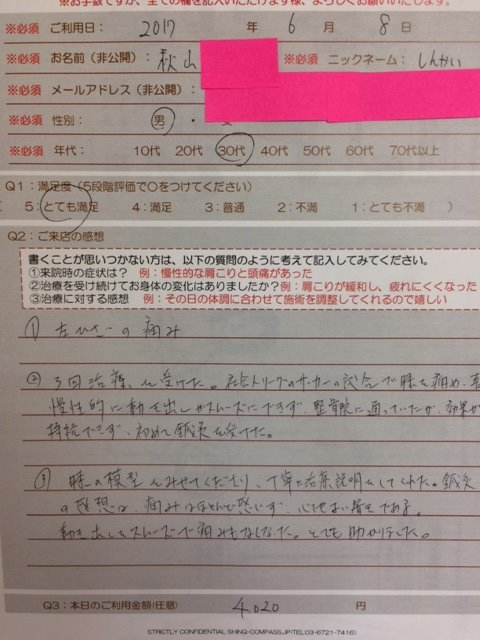 ※お手数ですが、全ての欄を記入いただけます様、よろしくお願いいたします。
※必須 ご利用日： 2017 年 6 月 8 日
※必須 お名前（非公開）： 秋山 ※必須 ニックネーム： しんかい
※必須 メールアドレス（非公開）：
※必須 性別： 男 ・
※必須 年代： 10代 20代 30代 40代 50代 60代 70代以上
Q1：満足度（5段階評価で○をつけてください）
5：とても満足 4：満足 3：普通 2：不満 1：とても不満 ）
Q2：ご来店の感想
書くことが思いつかない方は、以下の質問のように考えて記入してみてください。
①来院時の症状は？ 例：慢性的な肩こりと頭痛があった
②治療を受け続けてお身体の変化はありましたか？例：肩こりが緩和し、疲れにくくなった
③治療に対する感想 例：その日の体調に合わせて施術を調整してくれるので嬉しい
① 左ひざの痛み
② 3回治療を受けた。社会人リーグのサッカーの試合で膝を痛め、
慢性的に動き出しがスムーズにできず、整骨院に通っていたが、効果が
持続できず、初めて鍼灸を受けた。
③ 膝の模型をみせてくださり、丁寧に治療説明をしてくれた。鍼灸
の感想は、痛みはほとんど感じず、心地よい程度である。
動き出しもスムーズで痛みもなくなった。とても助かりました。
Q3：本日のご利用金額(任意) 4,020 円
STRICTLY CONFIDENTIAL SHINQ-COMPASS.JP(TEL.03-6721-7416)